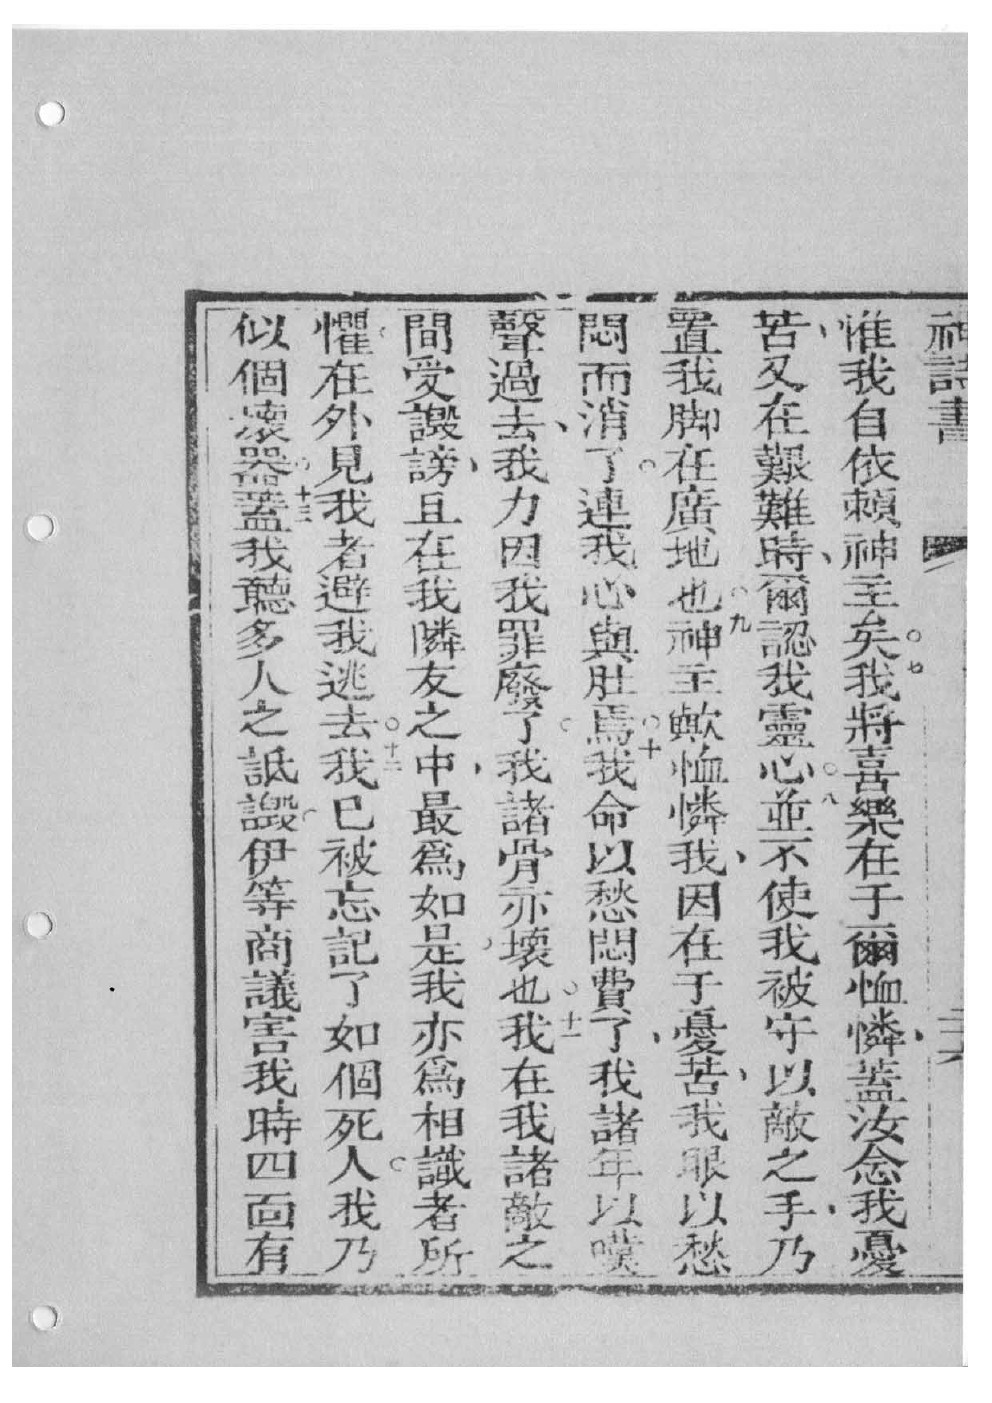 神詩書
惟我自依賴神主矣○七我將喜樂在于爾恤憐、蓋汝念我憂
苦、又在艱難時、爾認我靈心○八並不使我被守以敵之手、乃
置我脚在廣地也○九神主歟恤憐我、因在于憂苦、我眼以愁
悶而消了○連我心與肚焉○十我命以愁悶費了、我諸年以嘆
聲過去、我力因我罪廢了○我諸骨亦壞也○十一我在我諸敵之
間受譭謗、且在我隣友之中、最爲如是○我亦爲相識者所
懼○在外見我者避我逃去○十二我已被忘記了如個死人○我乃
似個壞器○十三蓋我聽多人之詆譭○伊等商議害我時四面有